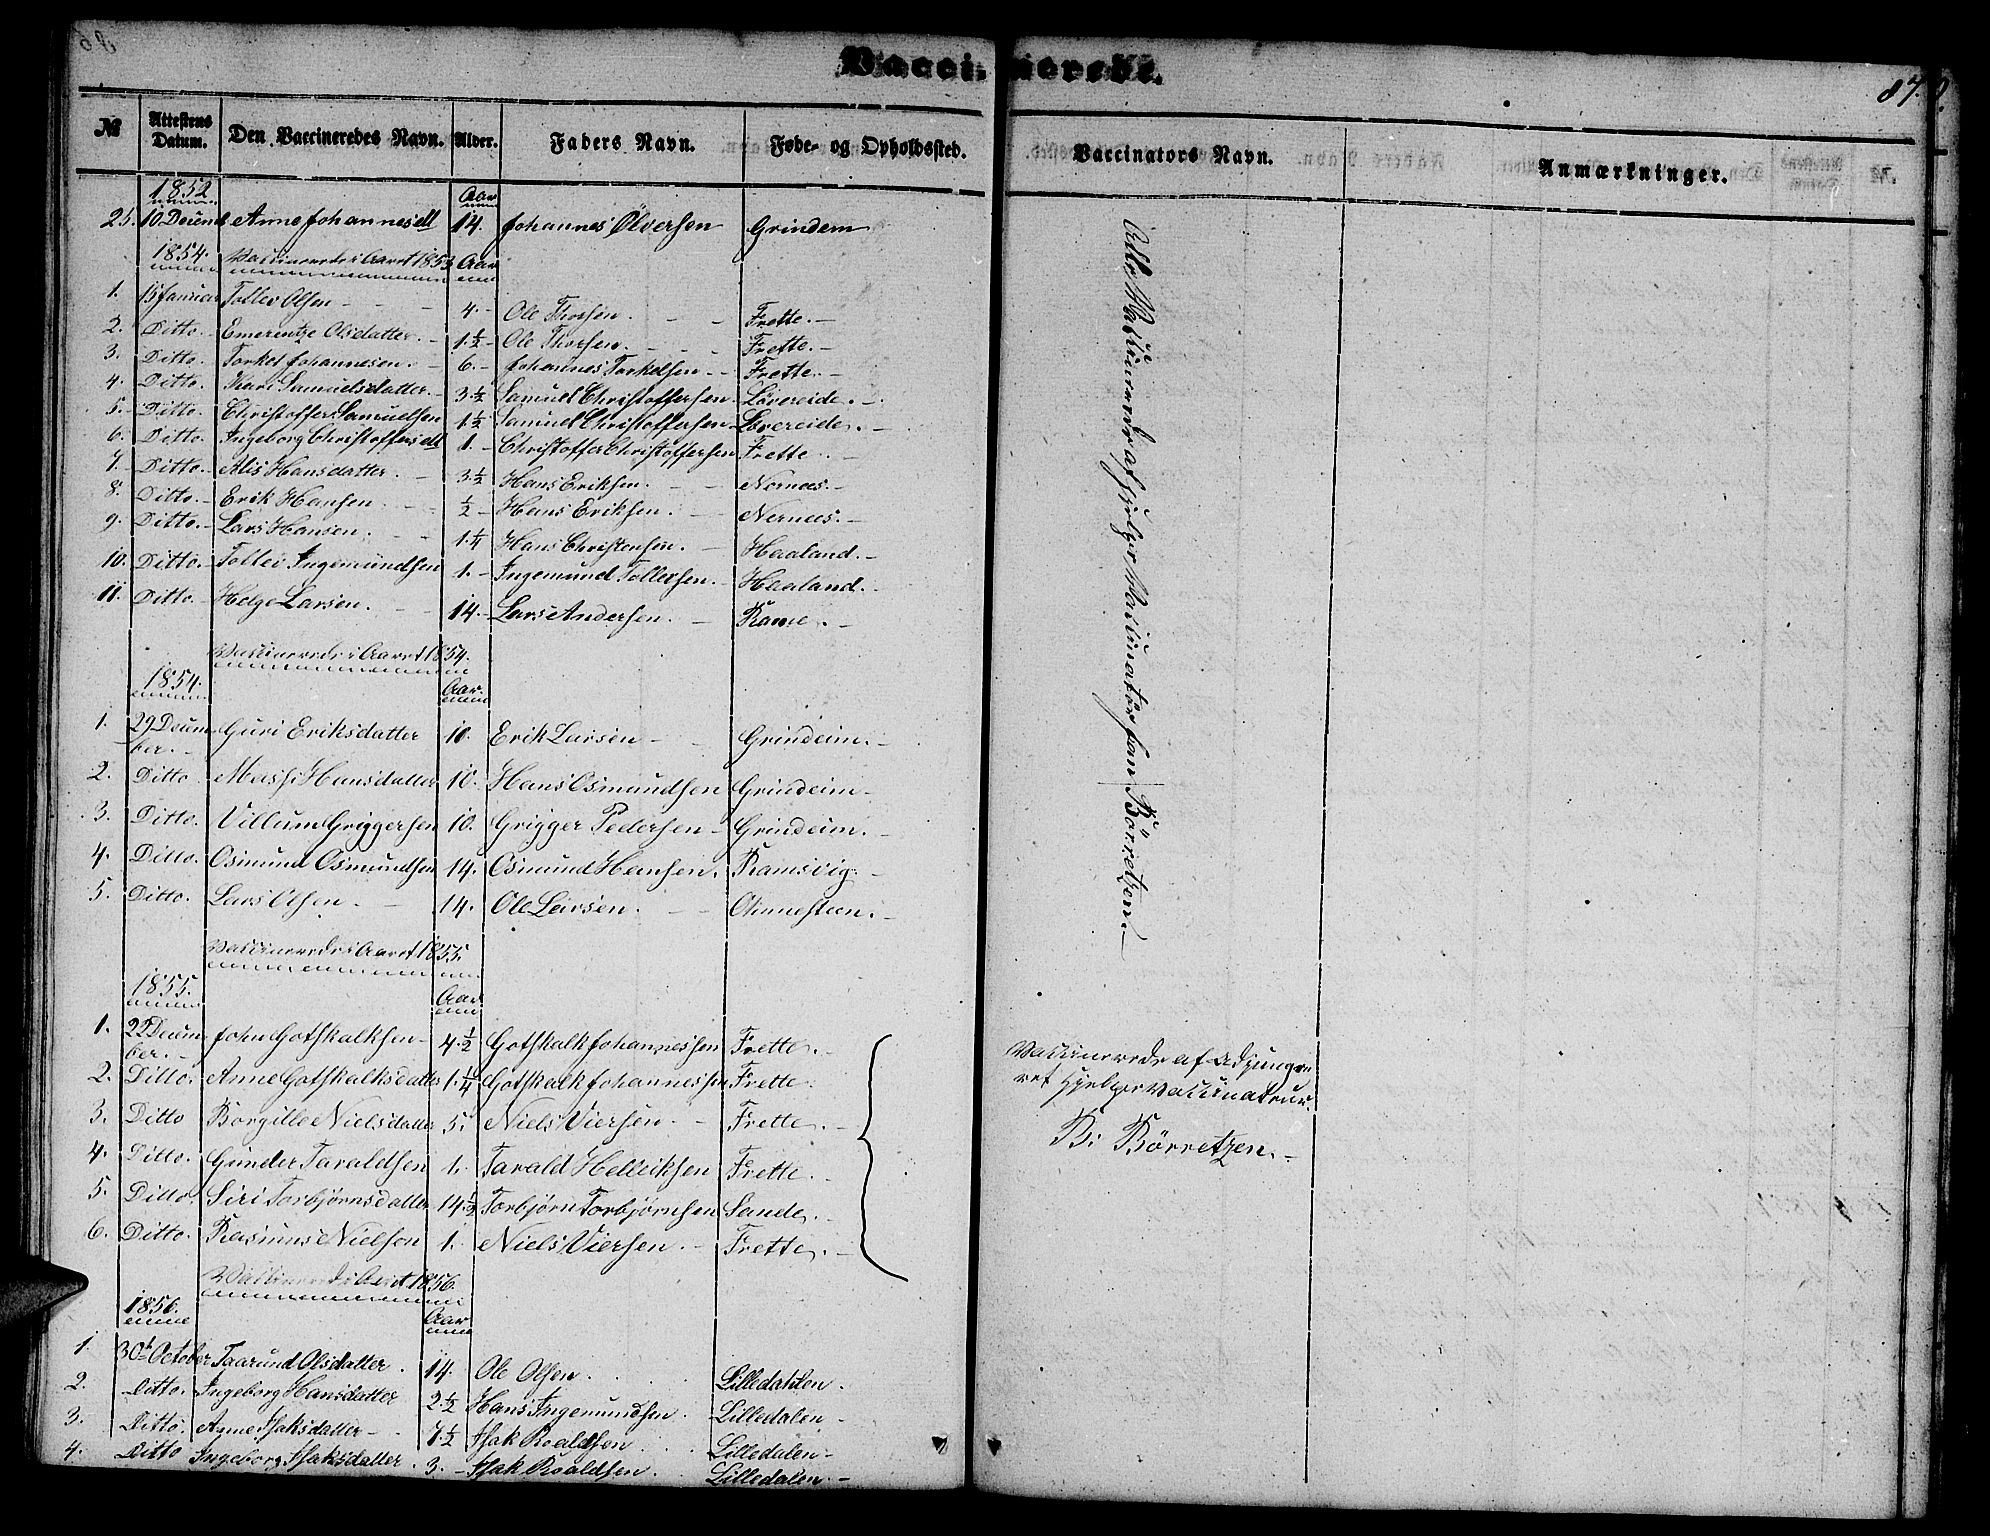 Vaccinerede.
87.
№ Attestens Datum. Den Vaccineredes Navn. Alder. Faders Navn. Føde- og Opholdssted. Vaccinators Navn. Anmærkninger.
1852. Aar
25. 10 Decemb Anne Johannesdtt 14. Johannes Ølversen Grindem
1854. Vaccinerede i Aaret 1853 Aar
1. 15 Januar Tollev Olsen 4. Ole Thorsen. Frette.
2. Ditto. Emerentze Olsdatter. 1.½ Ole Thorsen. Frette.
3. Ditto. Torkel Johannesen. 6. Johannes Torkelsen Frette.
4. Ditto. Kari Samuelsdatter. 3.½ Samuel Christoffersen. Løvereide.
5. Ditto. Christoffer Samuelsen 1½ Samuel Christoffersen Løvereide.
6. Ditto. Ingeborg Christoffersdtt 1. Christoffer Christoffersen Frette.
7. Ditto. Alis Hansdatter. 3.½ Hans Eriksen. Nernæs.
8. Ditto. Erik Hansen. ½ Hans Eriksen. Nernæs.
9. Ditto. Lars Hansen. 1.¼ Hans Christensen. Haaland.
10. Ditto. Tollei Ingemundsen 1. Ingemund Tollersen. Haaland.
11. Ditto. Helge Larsen. 14. Lars Andersen. Rame.
Vaccinerede i Aaret 1854.
1854. Aar.
1. 29 December. Guri Eriksdatter 10. Erik Larsen Grindeim.
2. Ditto Massi Hansdatter 10. Hans Osmundsen Grindeim
3. Ditto. Villum Griggersen 10. Grigger Pedersen Grindeim.
4. Ditto. Osmund Osmundsen 14. Osmund Hansen. Ramsvig.
5. Ditto. Lars Olsen. 14. Ole Larsen.
Alle Vaccinerede af hjelpe Vaccinatør Børretzen.
Vaccinerede i Aaret 1855.
1855. Aar
1. 22 December. John Gotskalksen 4.½ Gotskalk Johannessen Frette.
2. Ditto. Anne Gotskalksdatter 1.¼ Gotskalk Johannessen Frette.
3. Ditto Borgille Nielsdatter 5. Niels Viersen. Frette.
4. Ditto. Gunder Taraldsen 1. Tarald Helleiksen Frette.
5. Ditto. Siri Torbjørnsdatter 14.½ Torbjørn Torbjørnsen Sande.
6. Ditto. Rasmus Nielsen 1. Niels Viersen. Frette.
Vaccinerede af adjunge
ret Hjelpevaccinateur.
B. Børretzen.
Vaccinerede i Aaret 1856.
1856. Aar
1. 30t October Taarund Olsdatter. 14. Ole Olsen. Lilledahlen.
2. Ditto. Ingeborg Hansdatter 2½ Hans Ingemundsen. Lilledalen
3. Ditto. Anne Isaksdatter 7½ Isak Roaldsen Lilledalen
4. Ditto Ingeborg Isaksdatter. 3. Isak Roaldsen. Lilledalen.